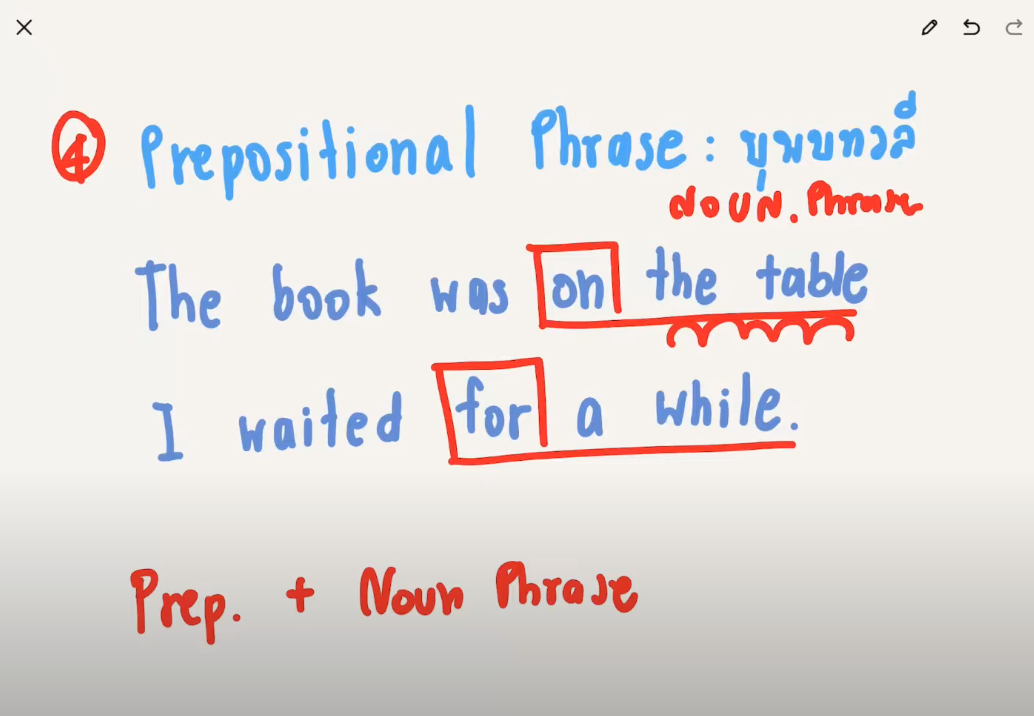 4 Prepositional Phrase : บุพบทวลี
noun. Phrase
The book was on the table
I waited for a while.
Prep. + Noun Phrase